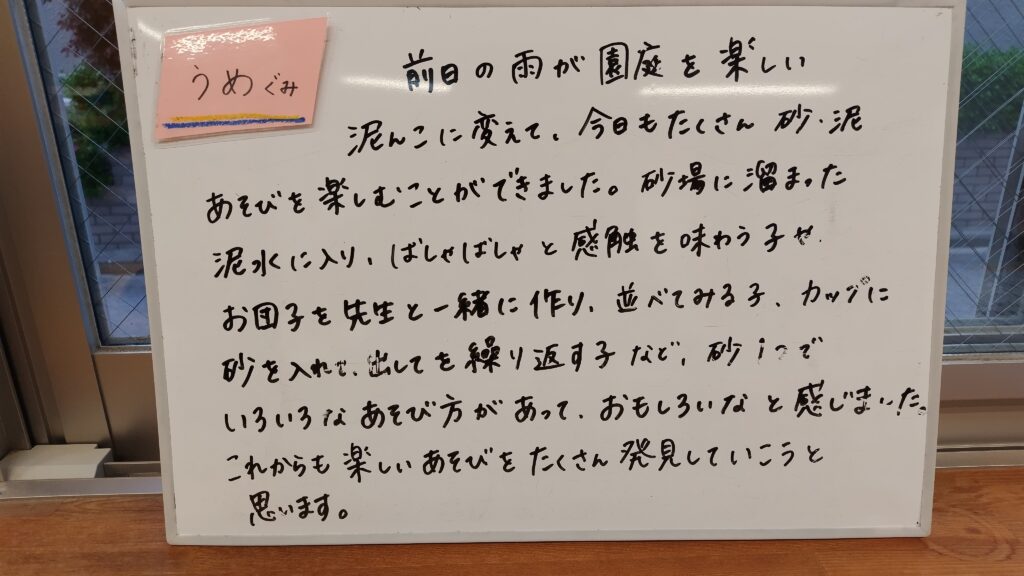 うめぐみ
前日の雨が園庭を楽しい
泥んこに変えて、今日もたくさん砂・泥
あそびを楽しむことができました。砂場に溜まった
泥水に入り、ばしゃばしゃと感触を味わう子や
お団子を先生と一緒に作り、並べてみる子、カップに
砂を入れて、出してを繰り返す子など、砂1つで
いろいろなあそび方があって、おもしろいなと感じました。
これからも楽しいあそびをたくさん発見していこうと
思います。